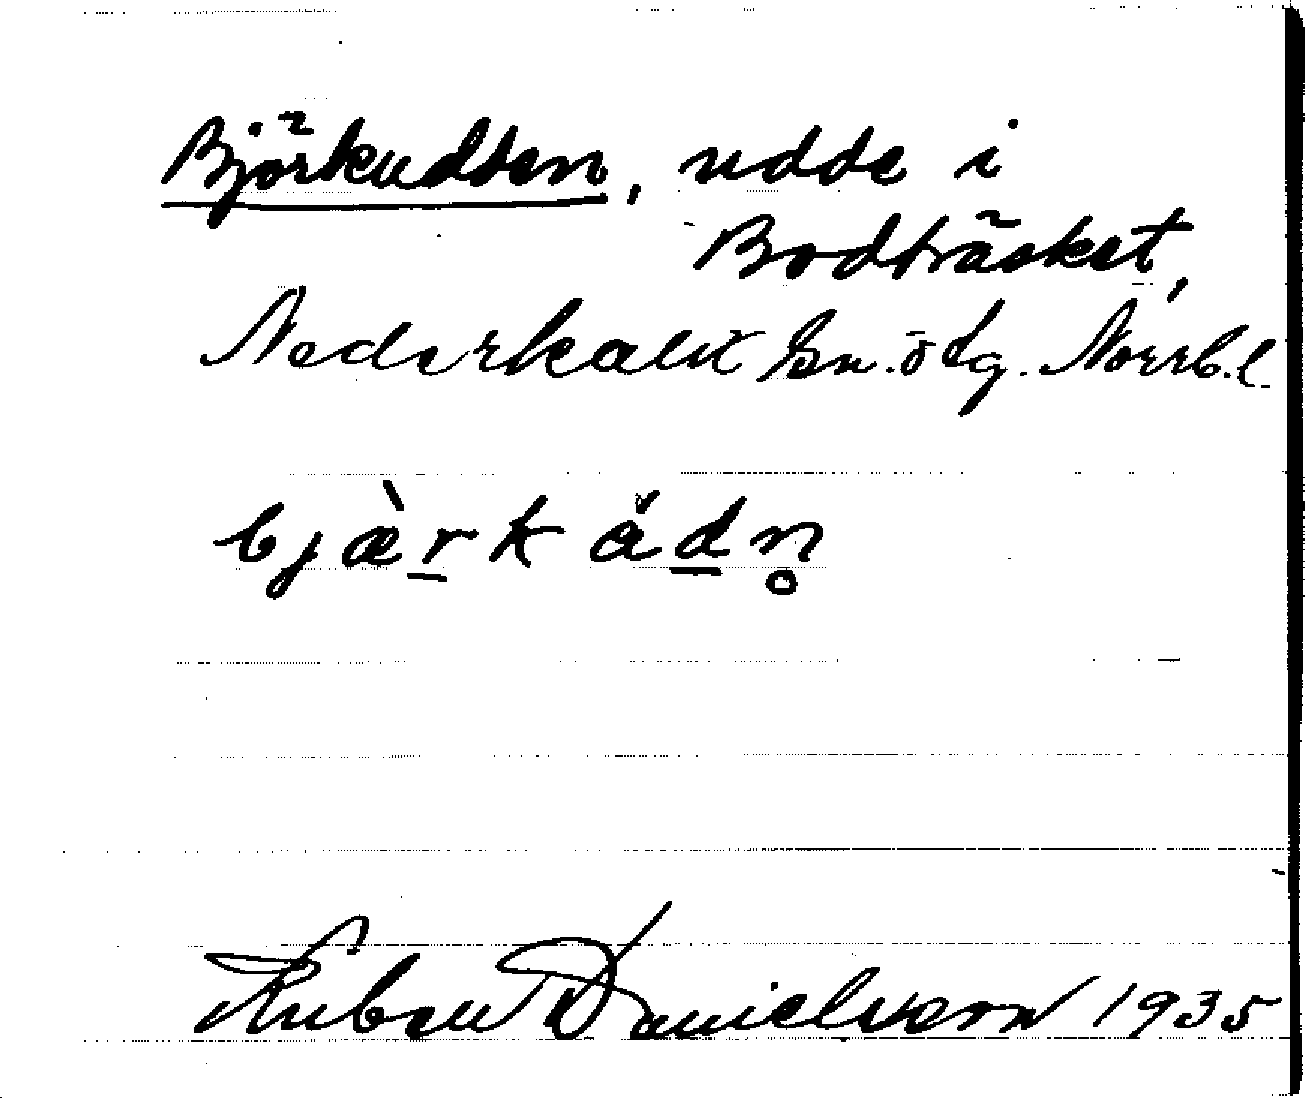 Björkudden, udde i
Bodträsket,
Nederkalix sn. o tg. Norrb. l.
bjæ̀r̲kåd̲n̥
Ruben Danielsson 1935